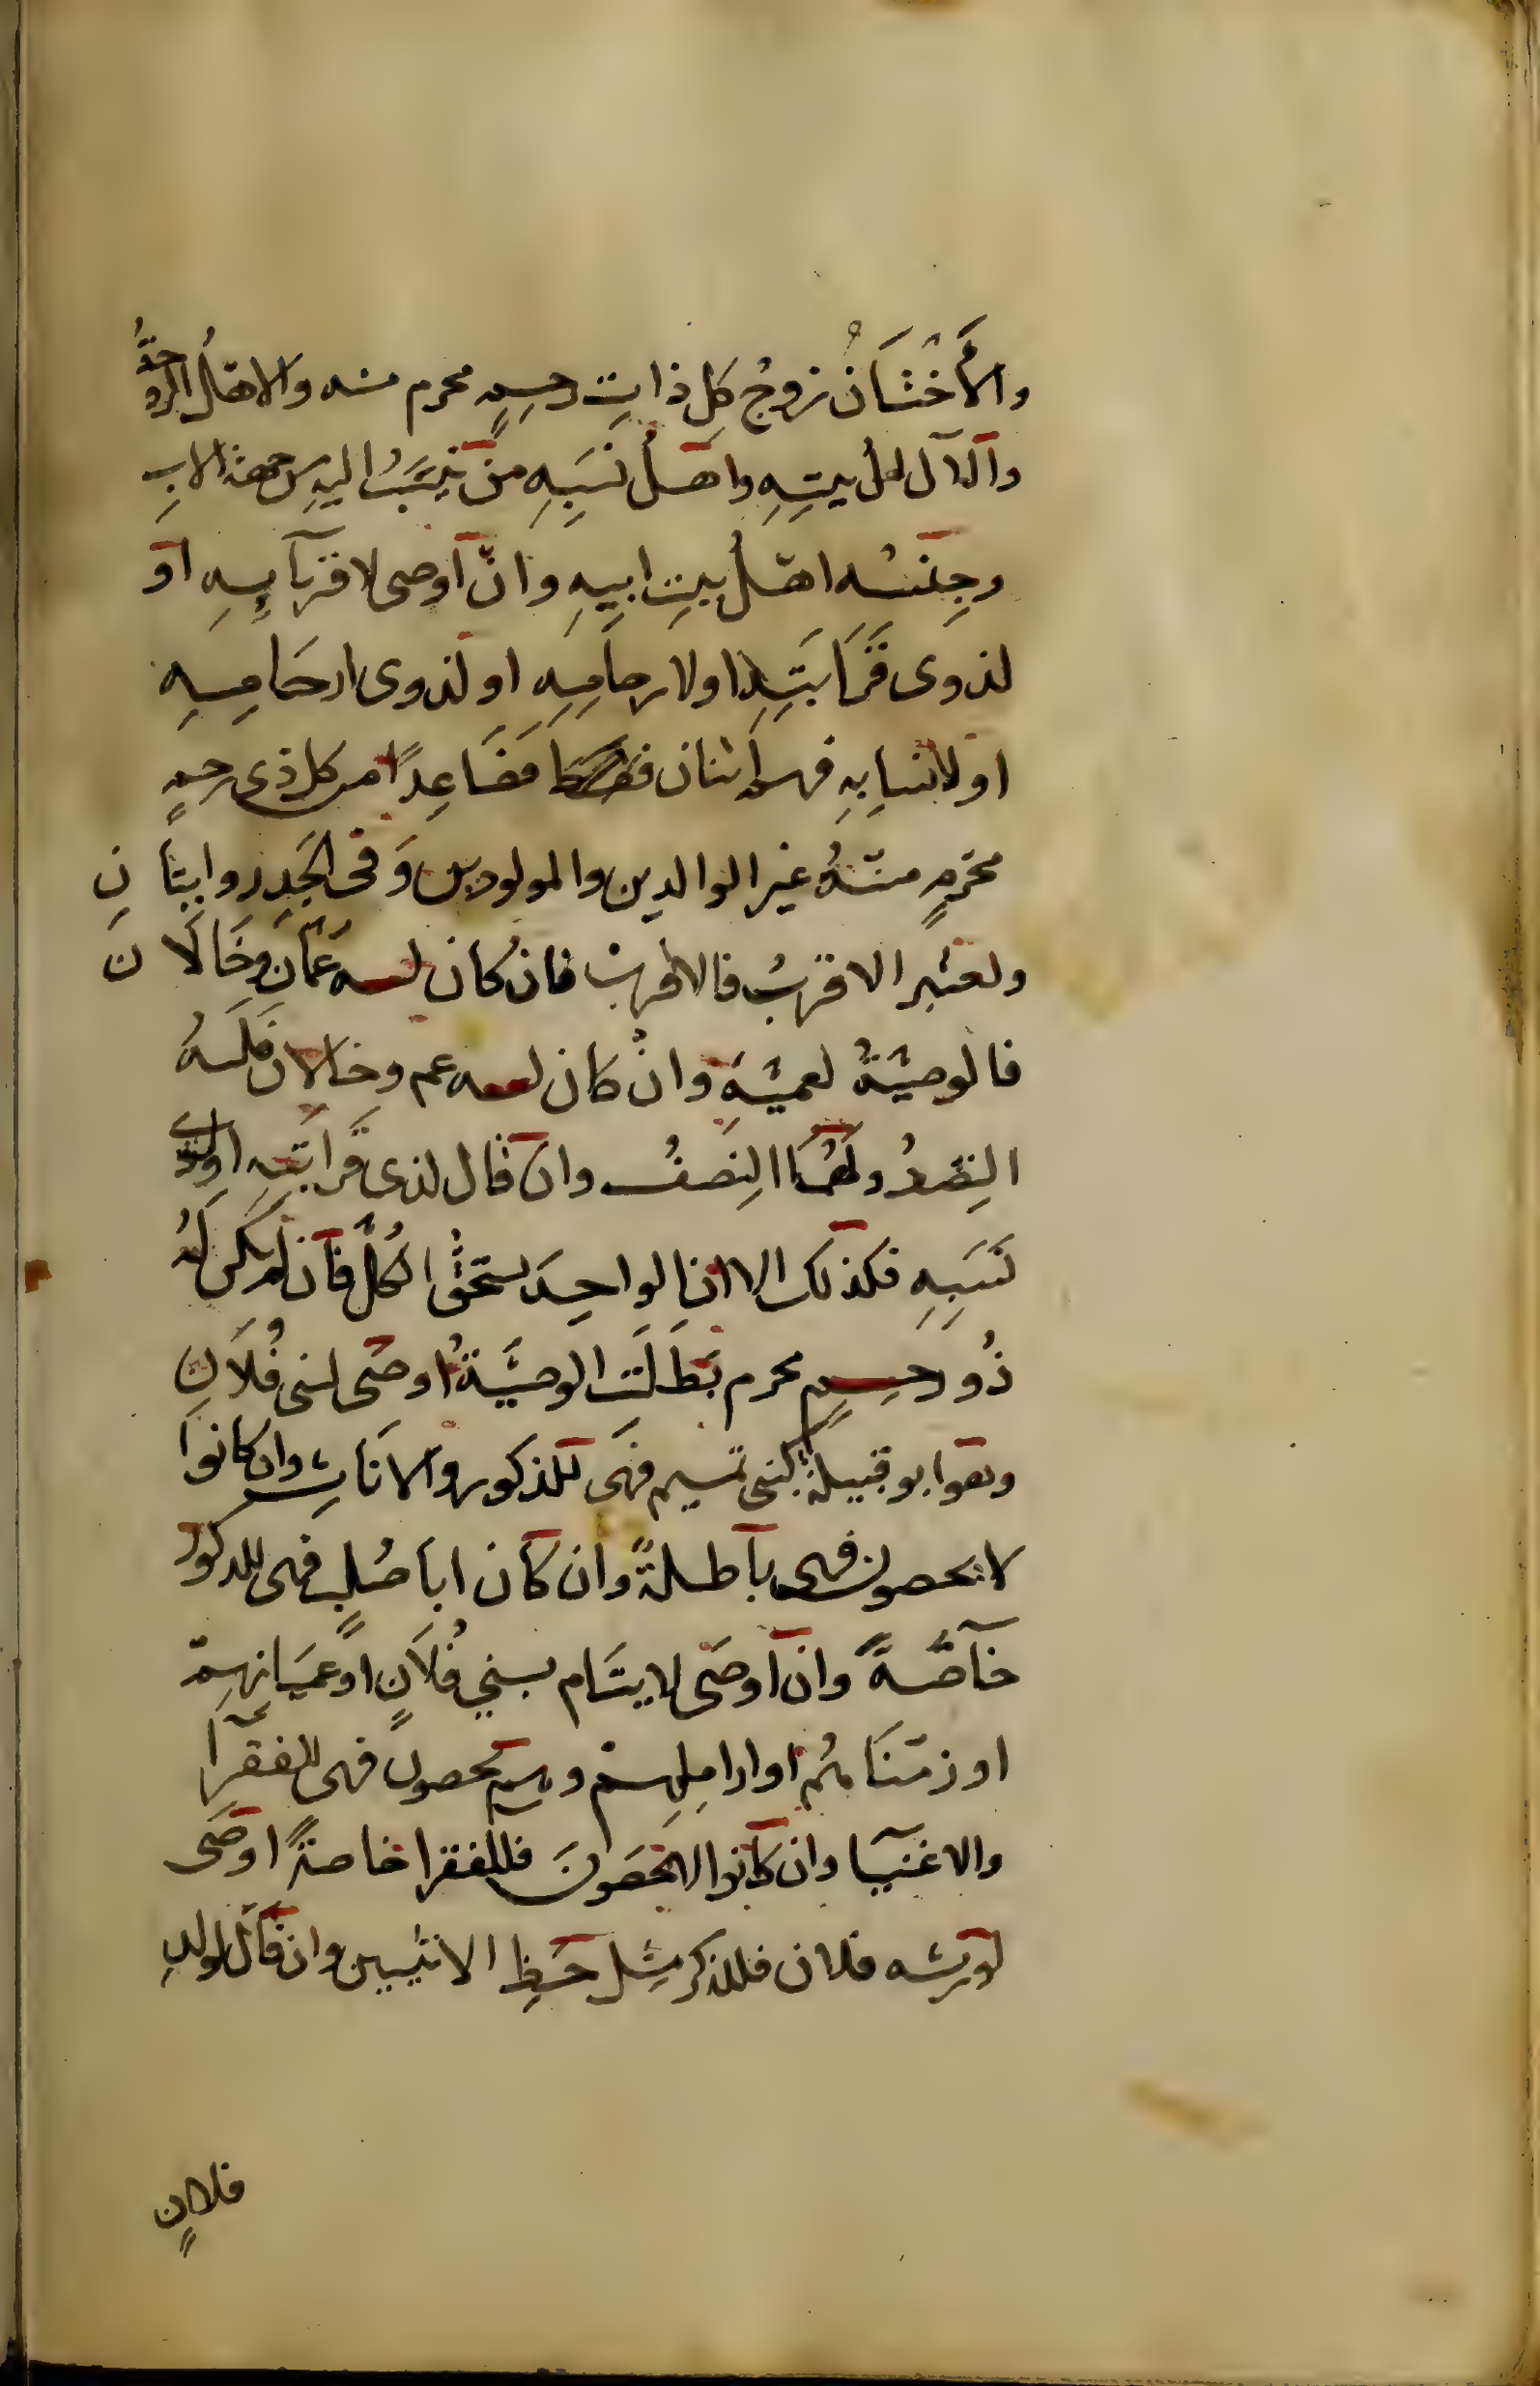 والأَخْتَانُ زوجُ كل ذاتِ رحِمٍ محرم منه والاهلُ الزوجةُ
والآل اهلُ بيتِهِ واهلُ نسَبِهِ من يُنسَبُ اليه من جهة الابِ
وجِنسُه اهلُ بيتِ ابيهِ وانْ اوصى لاقربآيِهِ او
لذوى قَرَابَتِهِ او لارحامِهِ او لذوى ارحَامِهِ
او لانسابِهِ فهم اثنان فصَاعِدًا من كل ذى رحمٍ
محرمٍ منهُ غير الوالدين والمولودين وَفى الجَدِ روايتَانِ
ويعتبر الاقربُ فالاقربُ فانْ كان له عَمَّان وخَالَانَ
فالوصيّةُ لعميّهِ وانْ كان له عم وخالان فَلَهُ
النِصفُ ولهُمَا النِصَفُ وان قال لذى قَرَابَتِهِ او لذى
نَسَبِهِ فكذلك الا ان الواحِدَ يستحقُّ الكُلَّ فان لم يكن لَهُ
ذُو رحِمٍ محرم بَطَلَتِ الوصيَّةُ اوصَى لبنى فُلَانٍ
وهو ابو قبيلةٍ كبنى تميم فهَى للذكور والانَاثِ وان كانوا
لا يحصون فهى باطلةً وان كان ابا صُلبٍ فهى للذكور
خآصَّةً وان اوصَى لايتَام بنيِ فُلَانٍ او عميَانِهِم
او زمنَاهُم او ارامِلِهِمْ وهم يحصون فهى للفقرآ
والاغنيآ وان كانوا لا يحصَونَ فللفقرا خاصةً اوصَى
لورثه فلان فللذكر مِثل حَظِ الانثيين وان قال لولدِ
فلانٍ